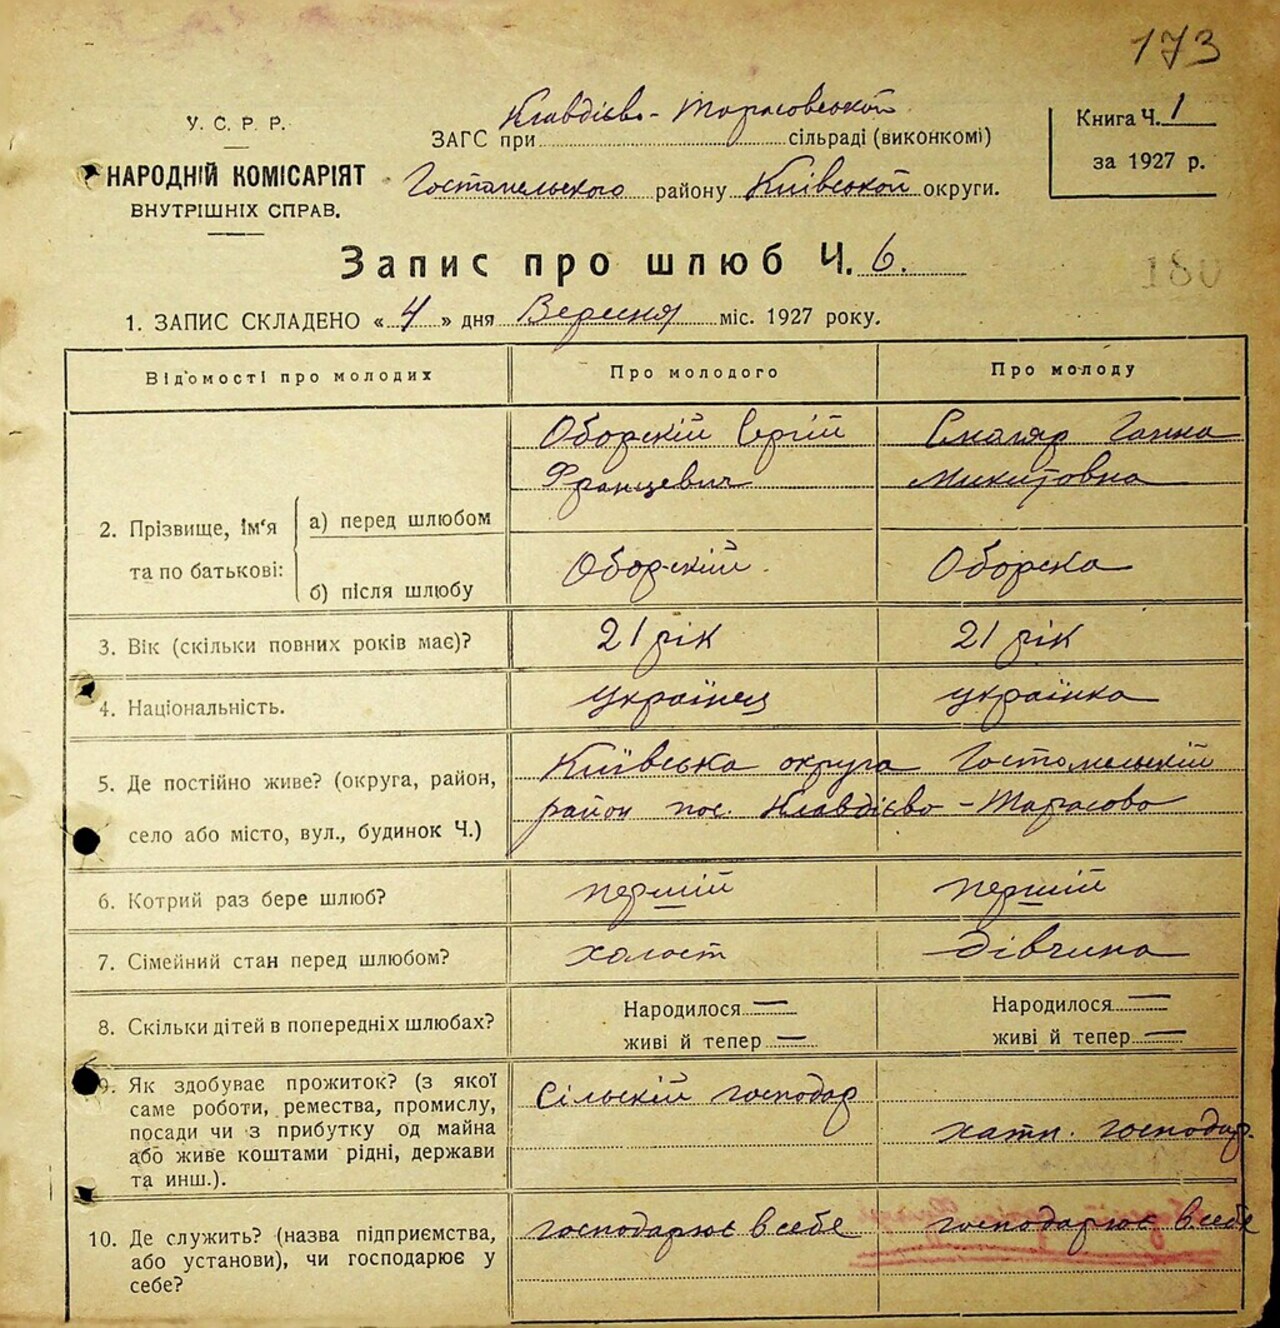 173
У. С. Р. Р.
НАРОДНІЙ КОМІСАРІЯТ
ВНУТРІШНІХ СПРАВ.
ЗАГС при Клавдієво-Тарасовській сільраді (виконкомі)
Гостомельського району Київської округи.
Книга Ч. 1
за 1927 р.
Запис про шлюб Ч. 6.
180
1. ЗАПИС СКЛАДЕНО «4» дня Вересня міс. 1927 року.
Відомості про молодих Про молодого Про молоду
2. Прізвище, ім'я та по батькові:
а) перед шлюбом
Оборскій Сергій
Францевич
Смаляр Ганна
Микитовна
б) після шлюбу Оборскій. Оборска
3. Вік (скільки повних років має)? 21 рік 21 рік
4. Національність. українец українка
5. Де постійно живе? (округа, район, Київська округа Гостомельскій
село або місто, вул., будинок Ч.) район пос. Клавдієво-Тарасово
6. Котрий раз бере шлюб? першій першій
7. Сімейний стан перед шлюбом? холост дівчина
8. Скільки дітей в попередніх шлюбах?
Народилося — Народилося —
живі й тепер — живі й тепер —
9. Як здобуває прожиток? (з якої
саме роботи, ремества, промислу,
посади чи з прибутку од майна
або живе коштами рідні, держави
та инш.).
Сільскій господар
хатн. господар.
10. Де служить? (назва підприємства,
або установи), чи господарює у
себе?
господарює в себе господарює в себе